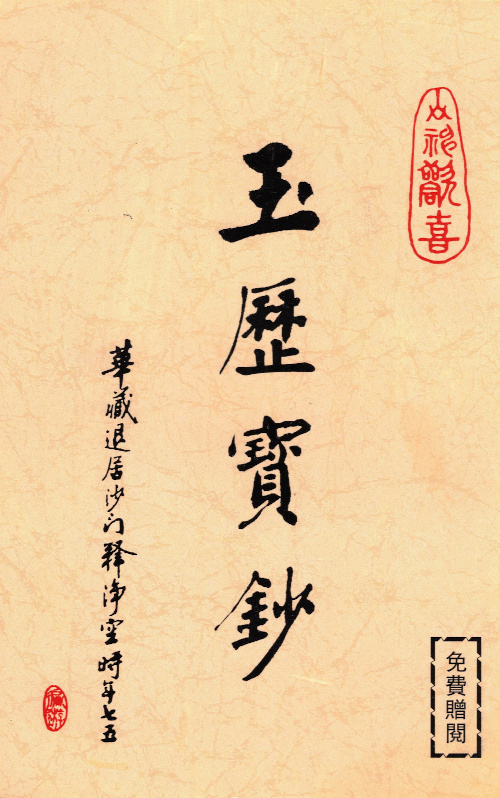 神歡喜
免費贈閱
玉歷寶鈔
華藏退居沙门釋淨空時年七五